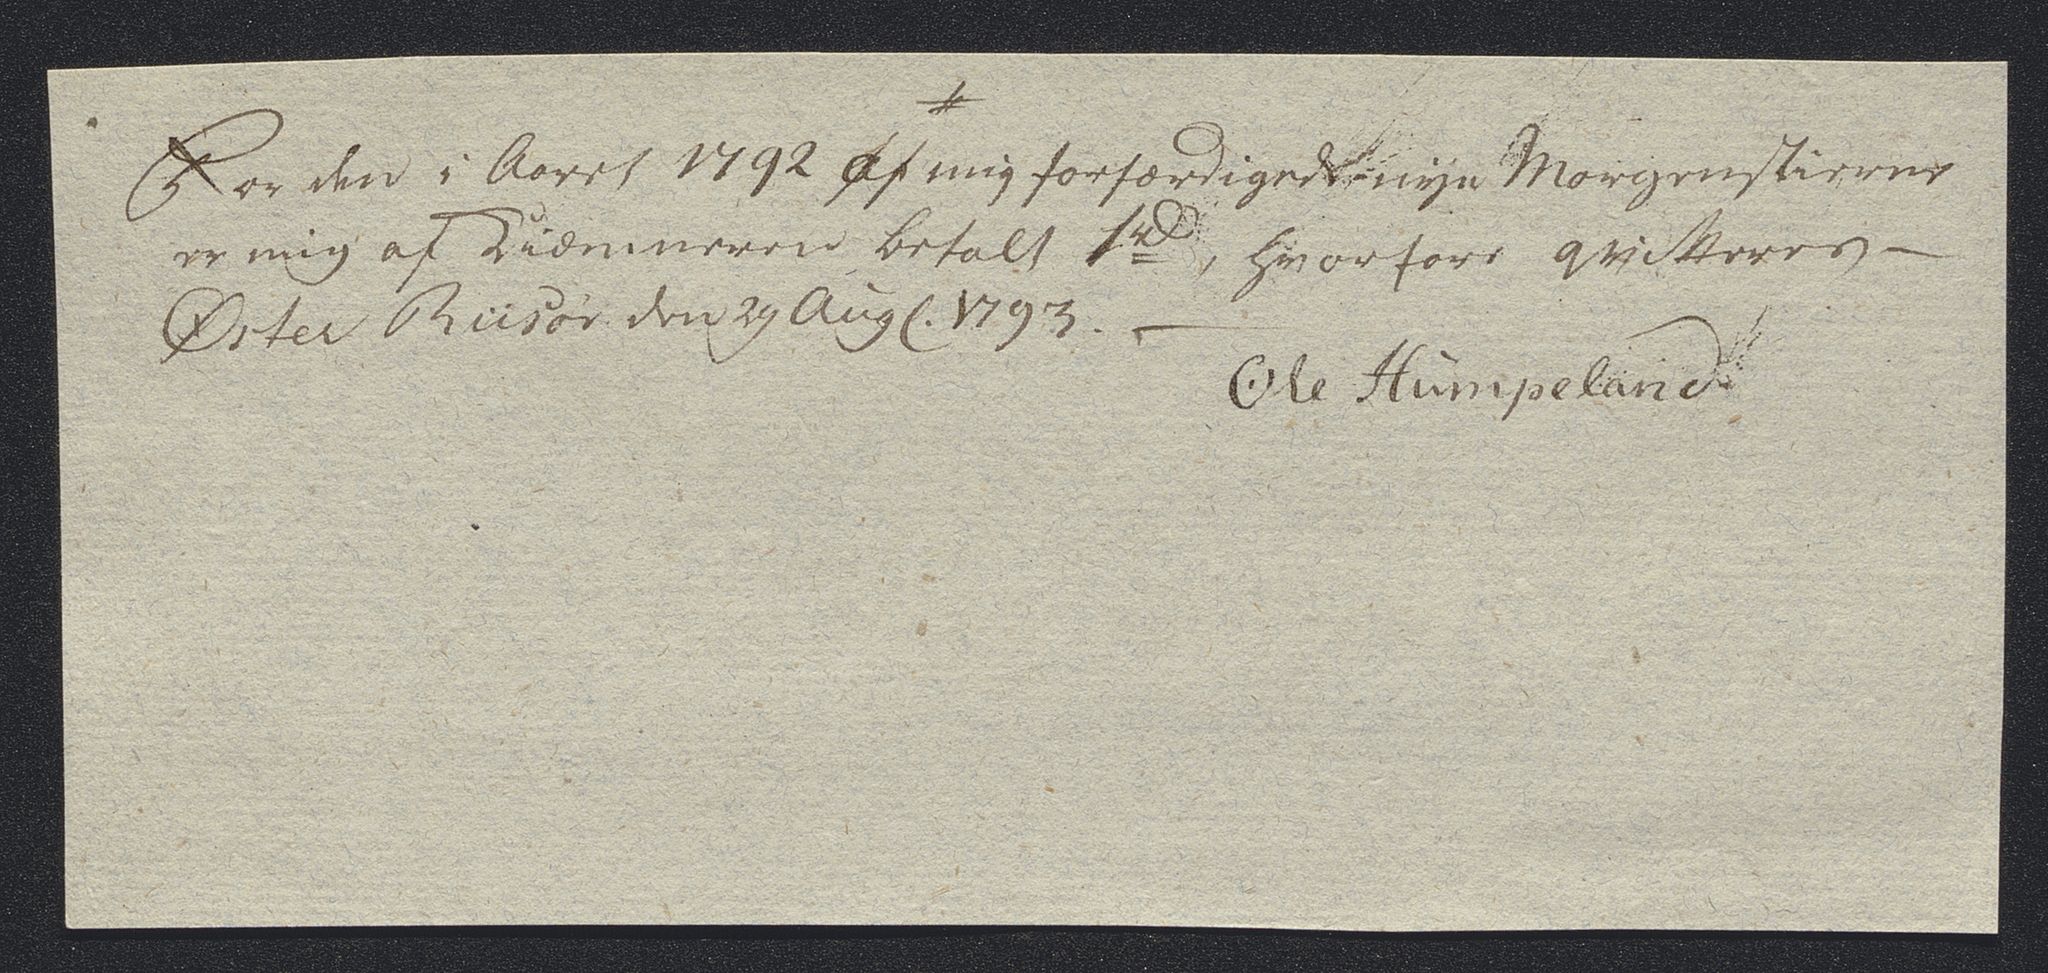 For den i Aaret 1792 af mig forfærdigede nye Morgenstierne
er mig af Tiæmneren betalt 1 rd, hvorfore qvitteres –
Øster Riisør den 29 Aug(. 1793. –
Ole Humpeland